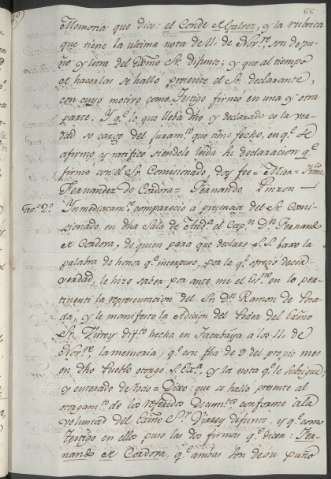 66
Memoria que dice: el Conde de Galvez, y la rubrica
que tiene la ultima nota de 11. de Nov.re son de pu-
ño y letra del Exmo Sr. Difunto; y que al tiempo
de hacerlas se halló presente el Sr. declarante,
con cuyo motivo como Testigo firmó en una y otra
parte. Y q.e lo que lleba dho y declarado es la ver-
dad so cargo del Juram.to que tiene fecho, en q.e se
afirmó, y ratificó siendole leida su declaracion q.e
firmó con el Sr. Comisionado, doy fee =
Fernandez de Cordova = Fernando Pinzon =
Inmediatam.te compareció a presencia del Sr. Comi-
sionado en dha Sala de el Cap.n Dn. Fernando
de Cordova, de quien para que declare S.S. bajo la
palabra de honor q.e interpuso, por la q.e ofreció decir
verdad, le hize saber por ante mi el en lo per-
tinente la representacion del Sr. Dn. Ramon de Posa-
da, y le manifesté la adicion del Poder del Exmo
Sr. Virrey dif.to hecha en Tacubaya a los 11. de
Nov.re la memoria, q.e con fha de 9 del propio mes
en dho Pueblo otorgó S. Exa. y la nota q.e le subsigue,
y enterado de todo = Dixo: que se halló presente al
otorgam.to de los referidos Docum.tos conforme a la
voluntad del Exmo Sr. Virrey difunto, y q.e como
Testigo en ello puso las dos firmas q.e dicen: Fer-
nando de Cordova, q.e ambas son de su puño